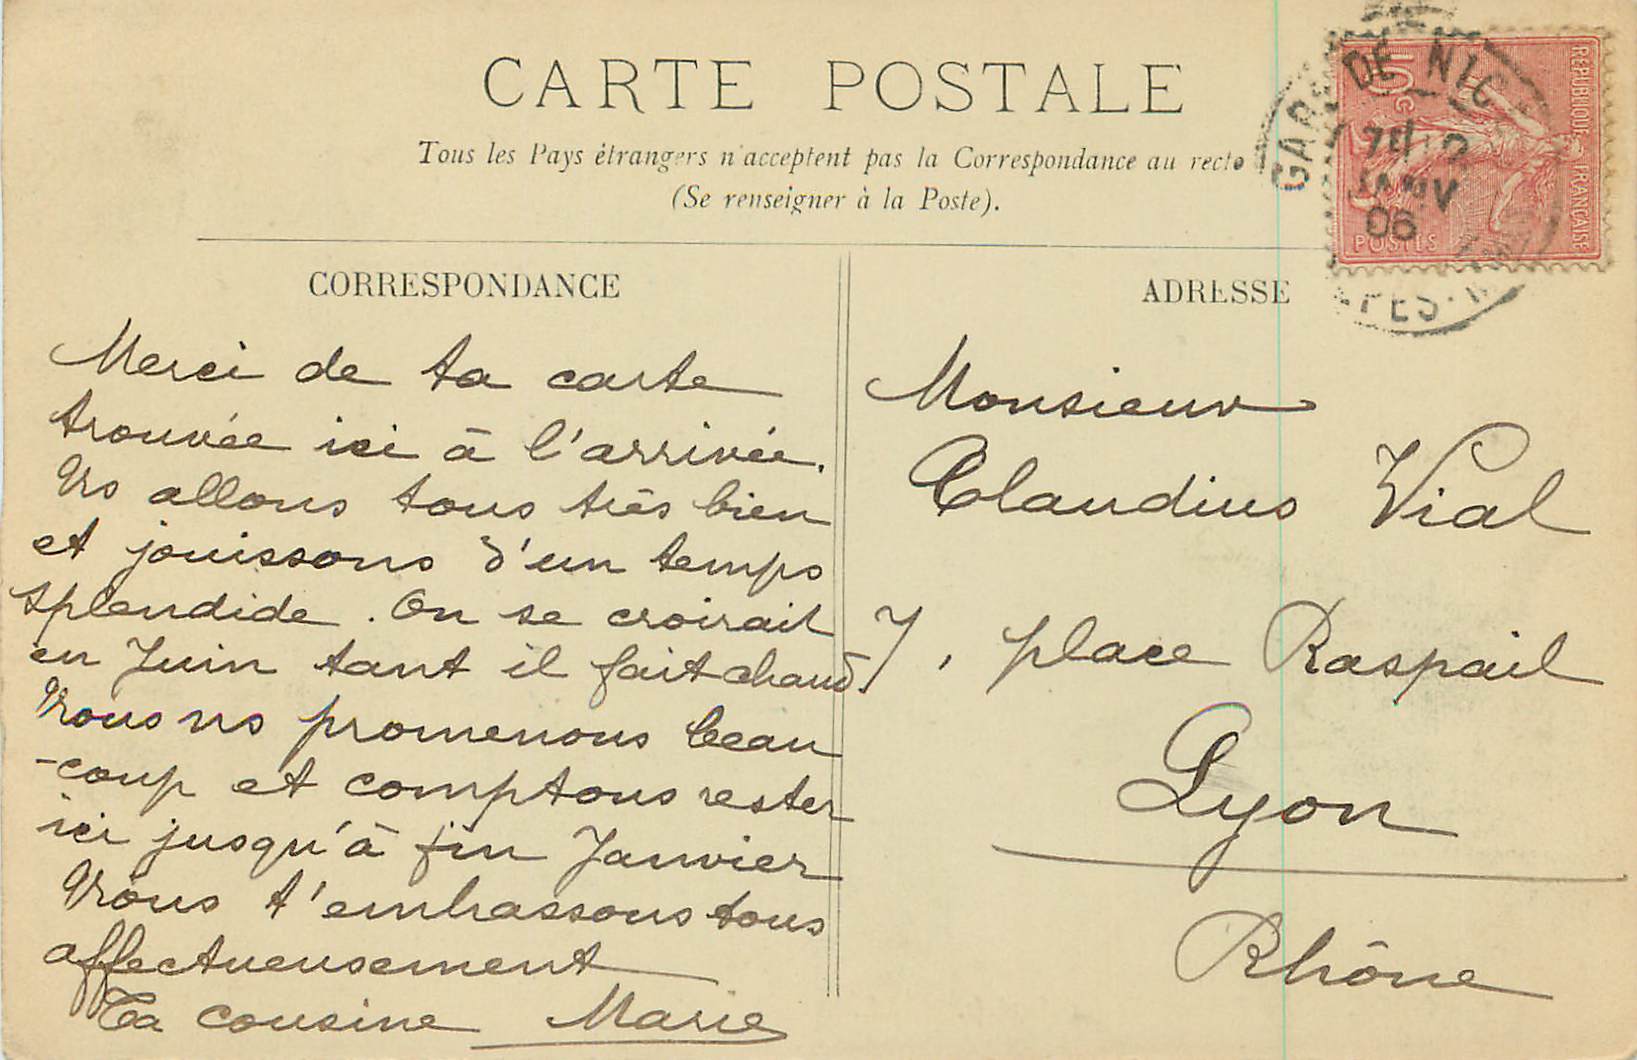 CARTE POSTALE
Tous les Pays étrangers n'acceptent pas la Correspondance au recto
(Se renseigner à la Poste).
CORRESPONDANCE
Merci de ta carte
trouvée ici à l'arrivée.
Ns allons tous très bien
et jouissons d'un temps
splendide. On se croirait
en Juin tant il fait chaud.
Nous ns promenons beau
-coup et comptons rester
ici jusqu'à fin Janvier
Nous t'embrassons tous
affectueusement
Ta cousine Marie
ADRESSE
Monsieur
Claudius Vial
7, place Raspail
Lyon
Rhône
GARE DE NIC
JANV
06
10 c
REPUBLIQUE FRANÇAISE
POSTES